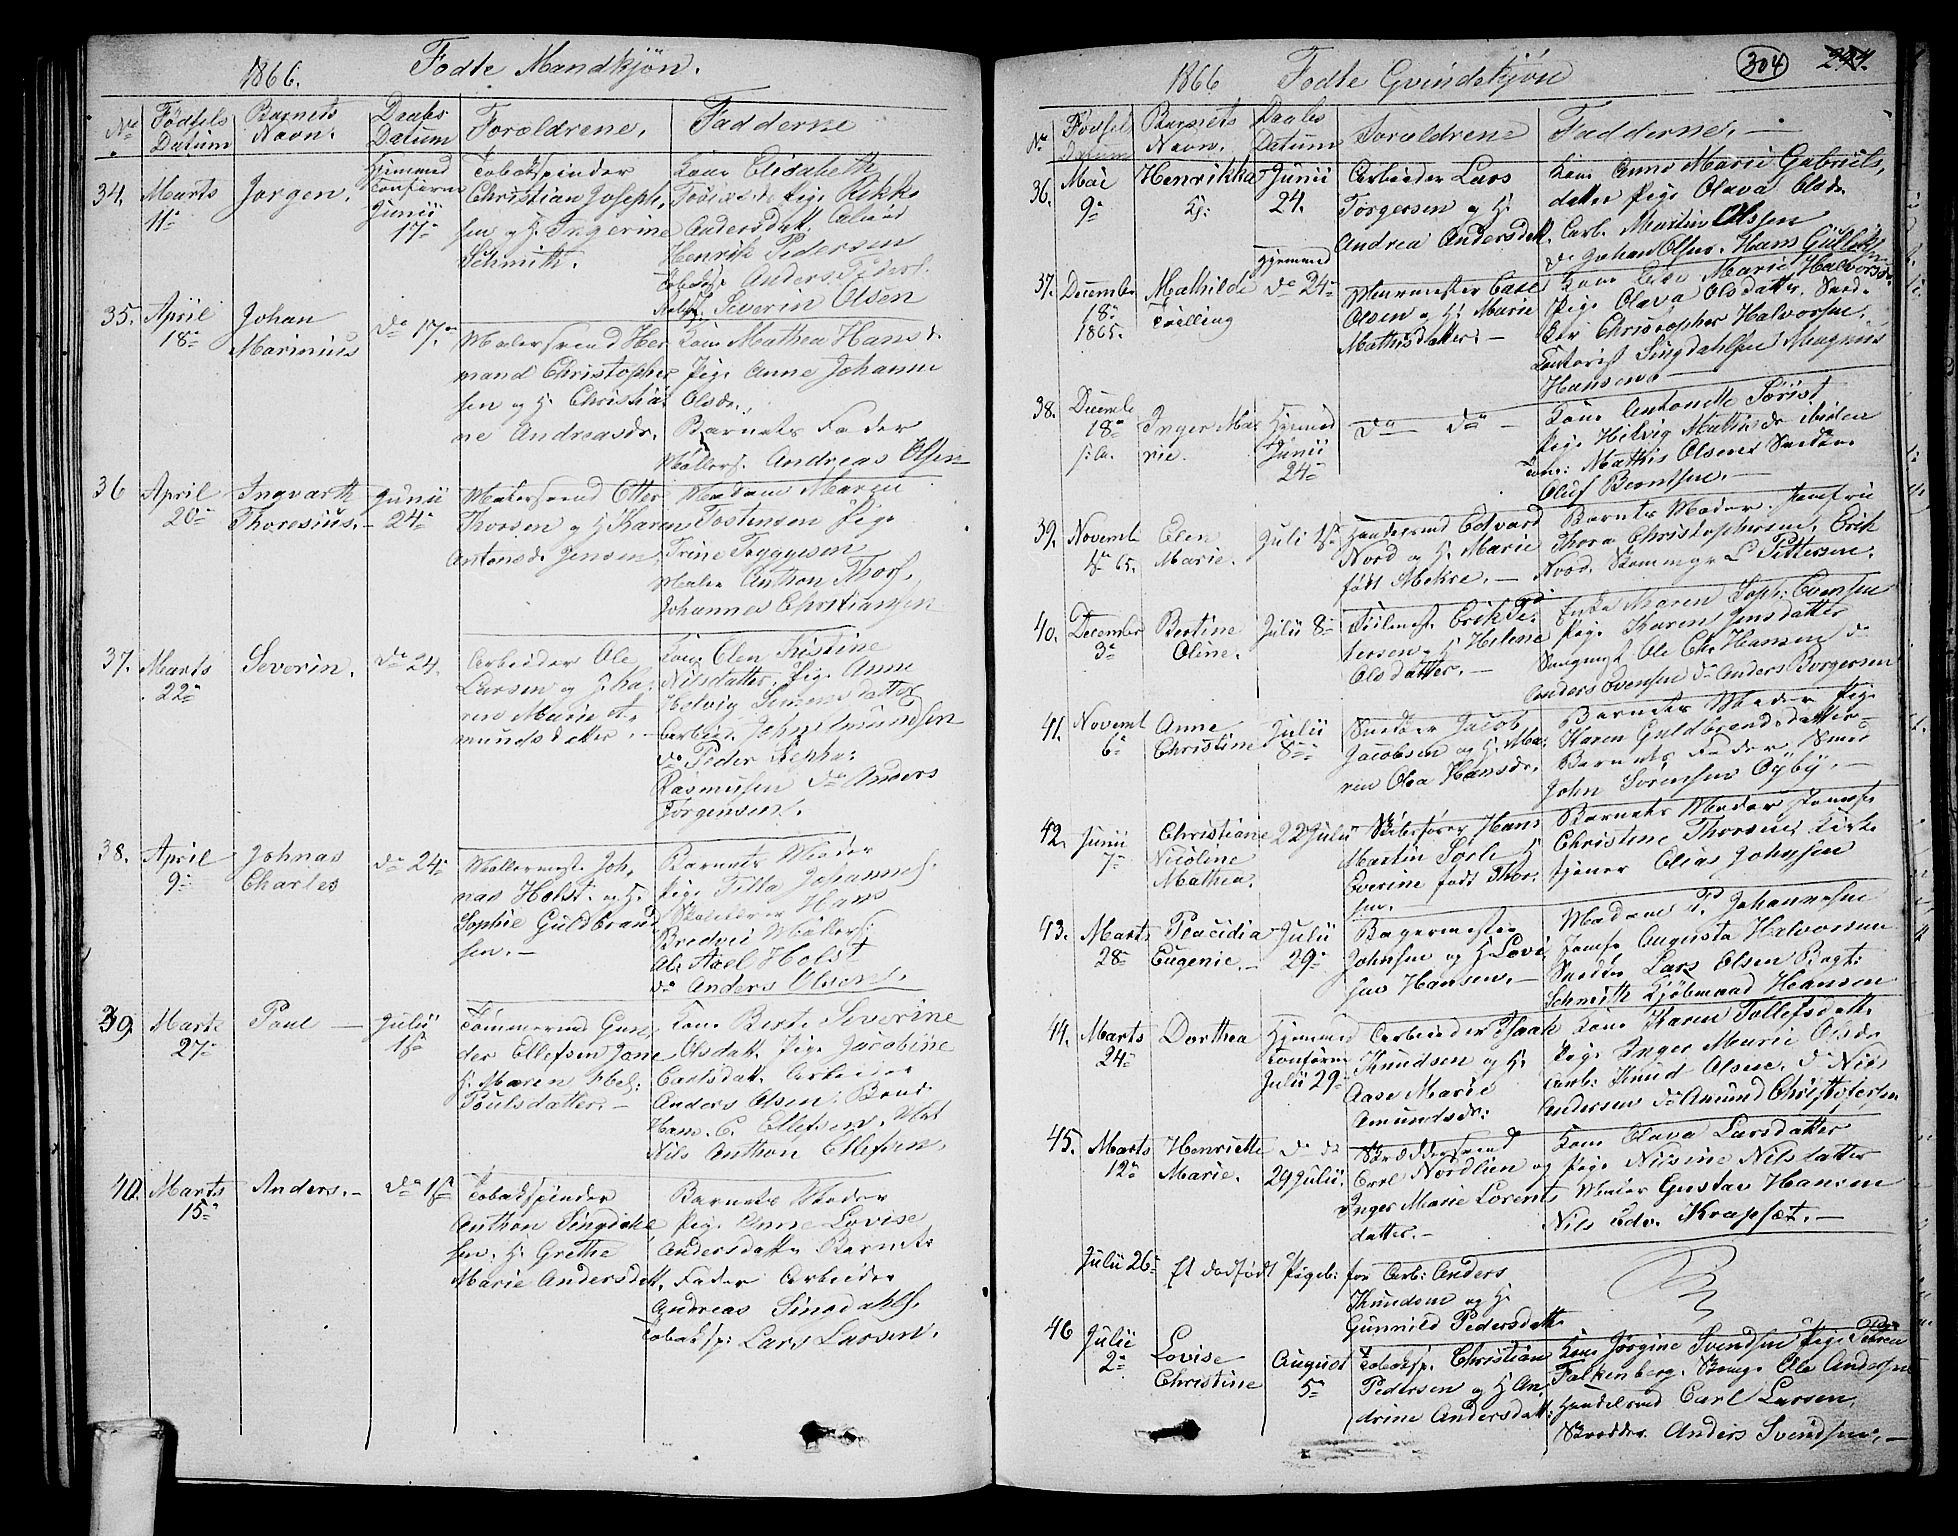 1866. Fødte Mandkjøn.
No Fødsels Datum Barnets Navn. Daabs Datum Forældrene. Fadderne
34. Marts 11te Jørgen. Hjemmed. Confirm. Junii 17de
Tobakspinder
Christian Joseph-
sen og H. Ingerine
Schmith.
Kone Elisabeth
Pige Rikke
Andersdatt.
Henrik Pedersen
Anders Peders.
Severin Olsen
35. April 18de Johan Marinius do 17de
Malersvend Her-
mand Christopher-
sen og H. Christia-
ne Andreasdr.
Kone Mathea Hansd.
Pige Anne Johanne
Olsdr.
Barnets Fader
Møllers. Andreas Olsen
36 April 20de Ingvarth Thoresius. Junii 24de
Malersvend Otter
Thorsen og H. Karen
Antonsd. Jensen
Madam Maren
Tostensen Pige
Trine Tryggesen
Maler Anthon Thors.
Johannes Christiansen
37. Marts 22de Severin. do 24.
Arbeider Ole
Larsen og H. Ka-
ren Marie A-
mundsdatter.
Kone Olen Kistine
Nilsdatter. Pige Anne
Helvig Simensdatter
Arbeid. John Amundsen
do Peder Stepha:
Rasmusen do Anders
Jørgensen.
38. April 9de Johnas Charles do 24de
Møllermest. Joh-
nas Holst og H.
Sophie Guldbrand-
sen.
Barnets Moder
Pige Tilla Johannes.
Skolelærer Hans
Bredvei Møllers.
Al: Axel Holst
do Anders Olsen.
39. Marts 27de Paul Julii 1ste
Tømmermd Gun-
der Ellefsen
H. Maren Abel:
Poulsdatter.
Kone Berte Severine
Olsdatt. Pige Jacobine
Carlsdatt. Arbeider
Anders Olsen.
Hans C. Ellefsen.
Nils Anthon Ellefsen.
40. Marts 15de Anders. do 1ste
Tobakspinder
Anthon Singdahl-
sen. H. Grethe
Marie Andersdatt.
Barnets Moder
Pige Anne Lovise
Andersdatt. Barnets
Fader Arbeider
Andreas Singdahls.
Tobaksp: Lars Larsen.
304 294.
1866 Fødte Qvindekjøn
No Fødsel Datum Barnets Navn. Daabs Datum Forældrene Fadderne.
36. Mai 9de Henrikka Junii 24.
Arbeider Lars
Torgersen og H.
Andrea Andersdatt.
Kone Anne Marie Gabriels-
datter Pige Olava Olsdr.
Arb. Martin Olsen
do Johan Olsen. Hans Gulliks.
37. December 18de 1865. Mathilde Tvilling Hjemmed do 24de
Muurmester Carl
Olsen og H. Marie
Mathisdatter.
Kone Else Marie Halvorsdr.
Pige Olava Olsdatter.
Christopher Halvorsen.
Singdahlsen Magnus
Hansen
38. Decemb. 18de Inger Marie. Hjemmed Junii 24de do do
Kone Antonette Sørist
Pige Helvig Mathisdr.
Mathis Olsen
Oluf Berntsen.
39. Novemb. 65. Elen Marie. Juli 1ste
Edvard
Nord og H. Marie
født Mokre.
Barnets Moder. Jomfrue
Thora Christophersen. Erik
Nord. L Pettersen.
40. December 3de Bertine Oline. Julii 8de
Erik Pe-
tersen og H. Helene
Olsdatter.
Enke Maren Soph: Evensen
Pige Karen Jensdatter
Ole Chr. Hansen do
Anders Evensen do Anders Borgersen
41. Novemb. 6te Anne Christine Julii 8de
Jacob
Jacobsen og H. Ma-
ren Olea Hansdr.
Barnets Moder Pige
Karen Guldbrandsdatter
Barnets Fader,
John Sørensen Oyby.
42. Junii 7de Christiane Nicoline Mathea. 22 Julii
Skibsfører Hans
Martin Sørli H.
Everine født Thor-
sen.
Barnets Moder Jomfr.
Christine Thorsen Kirke-
tjener Elias Johnsen
43. Marts 28de Placidia Eugenie. Julii 29de
Bagermester
Johnsen og H. Lovi-
se Hansen.
Madam P. Johannesen
Jomfr. Augusta Halvorsen
Lars Olsen Bogt:
Schmith Kjøbmand Hansen
44. Marts 24de Dorthea Hjemmed Confirm Julii 29de
Arbeider Isaak
Knudsen og H.
Aase Marie
Amundsdr.
Kone Karen Tollefsdatt.
Pige Inger Marie Olsdr.
Arb: Knud Olsen. do Nils
Andersen do Amund Christophersen
45. Marts 12te Henriette Marie. do do 29 Julii.
Skræddersvend
Carl Nordlien og
Inger Marie Lorents-
datter.
Kone Olava Larsdatter
Pige Nilsine Nilsdatter
Maler Gustav Hansen
Nils Edv. Krapsæt.
Julii 26de Et dødfødt Pigeb: for Arb: Anders
Knudsen og H.
Gunnild Pedersdatt.
46 Julii 2de Lovise Christine August 5te
Tobaksp. Christian
Pedersen og H. An-
drine Andersdatt.
Kone Jørgine Svendsen Pige
Falkenberg. Ole Andersen
Carl Larsen.
Skrædder Anders Svendsen.